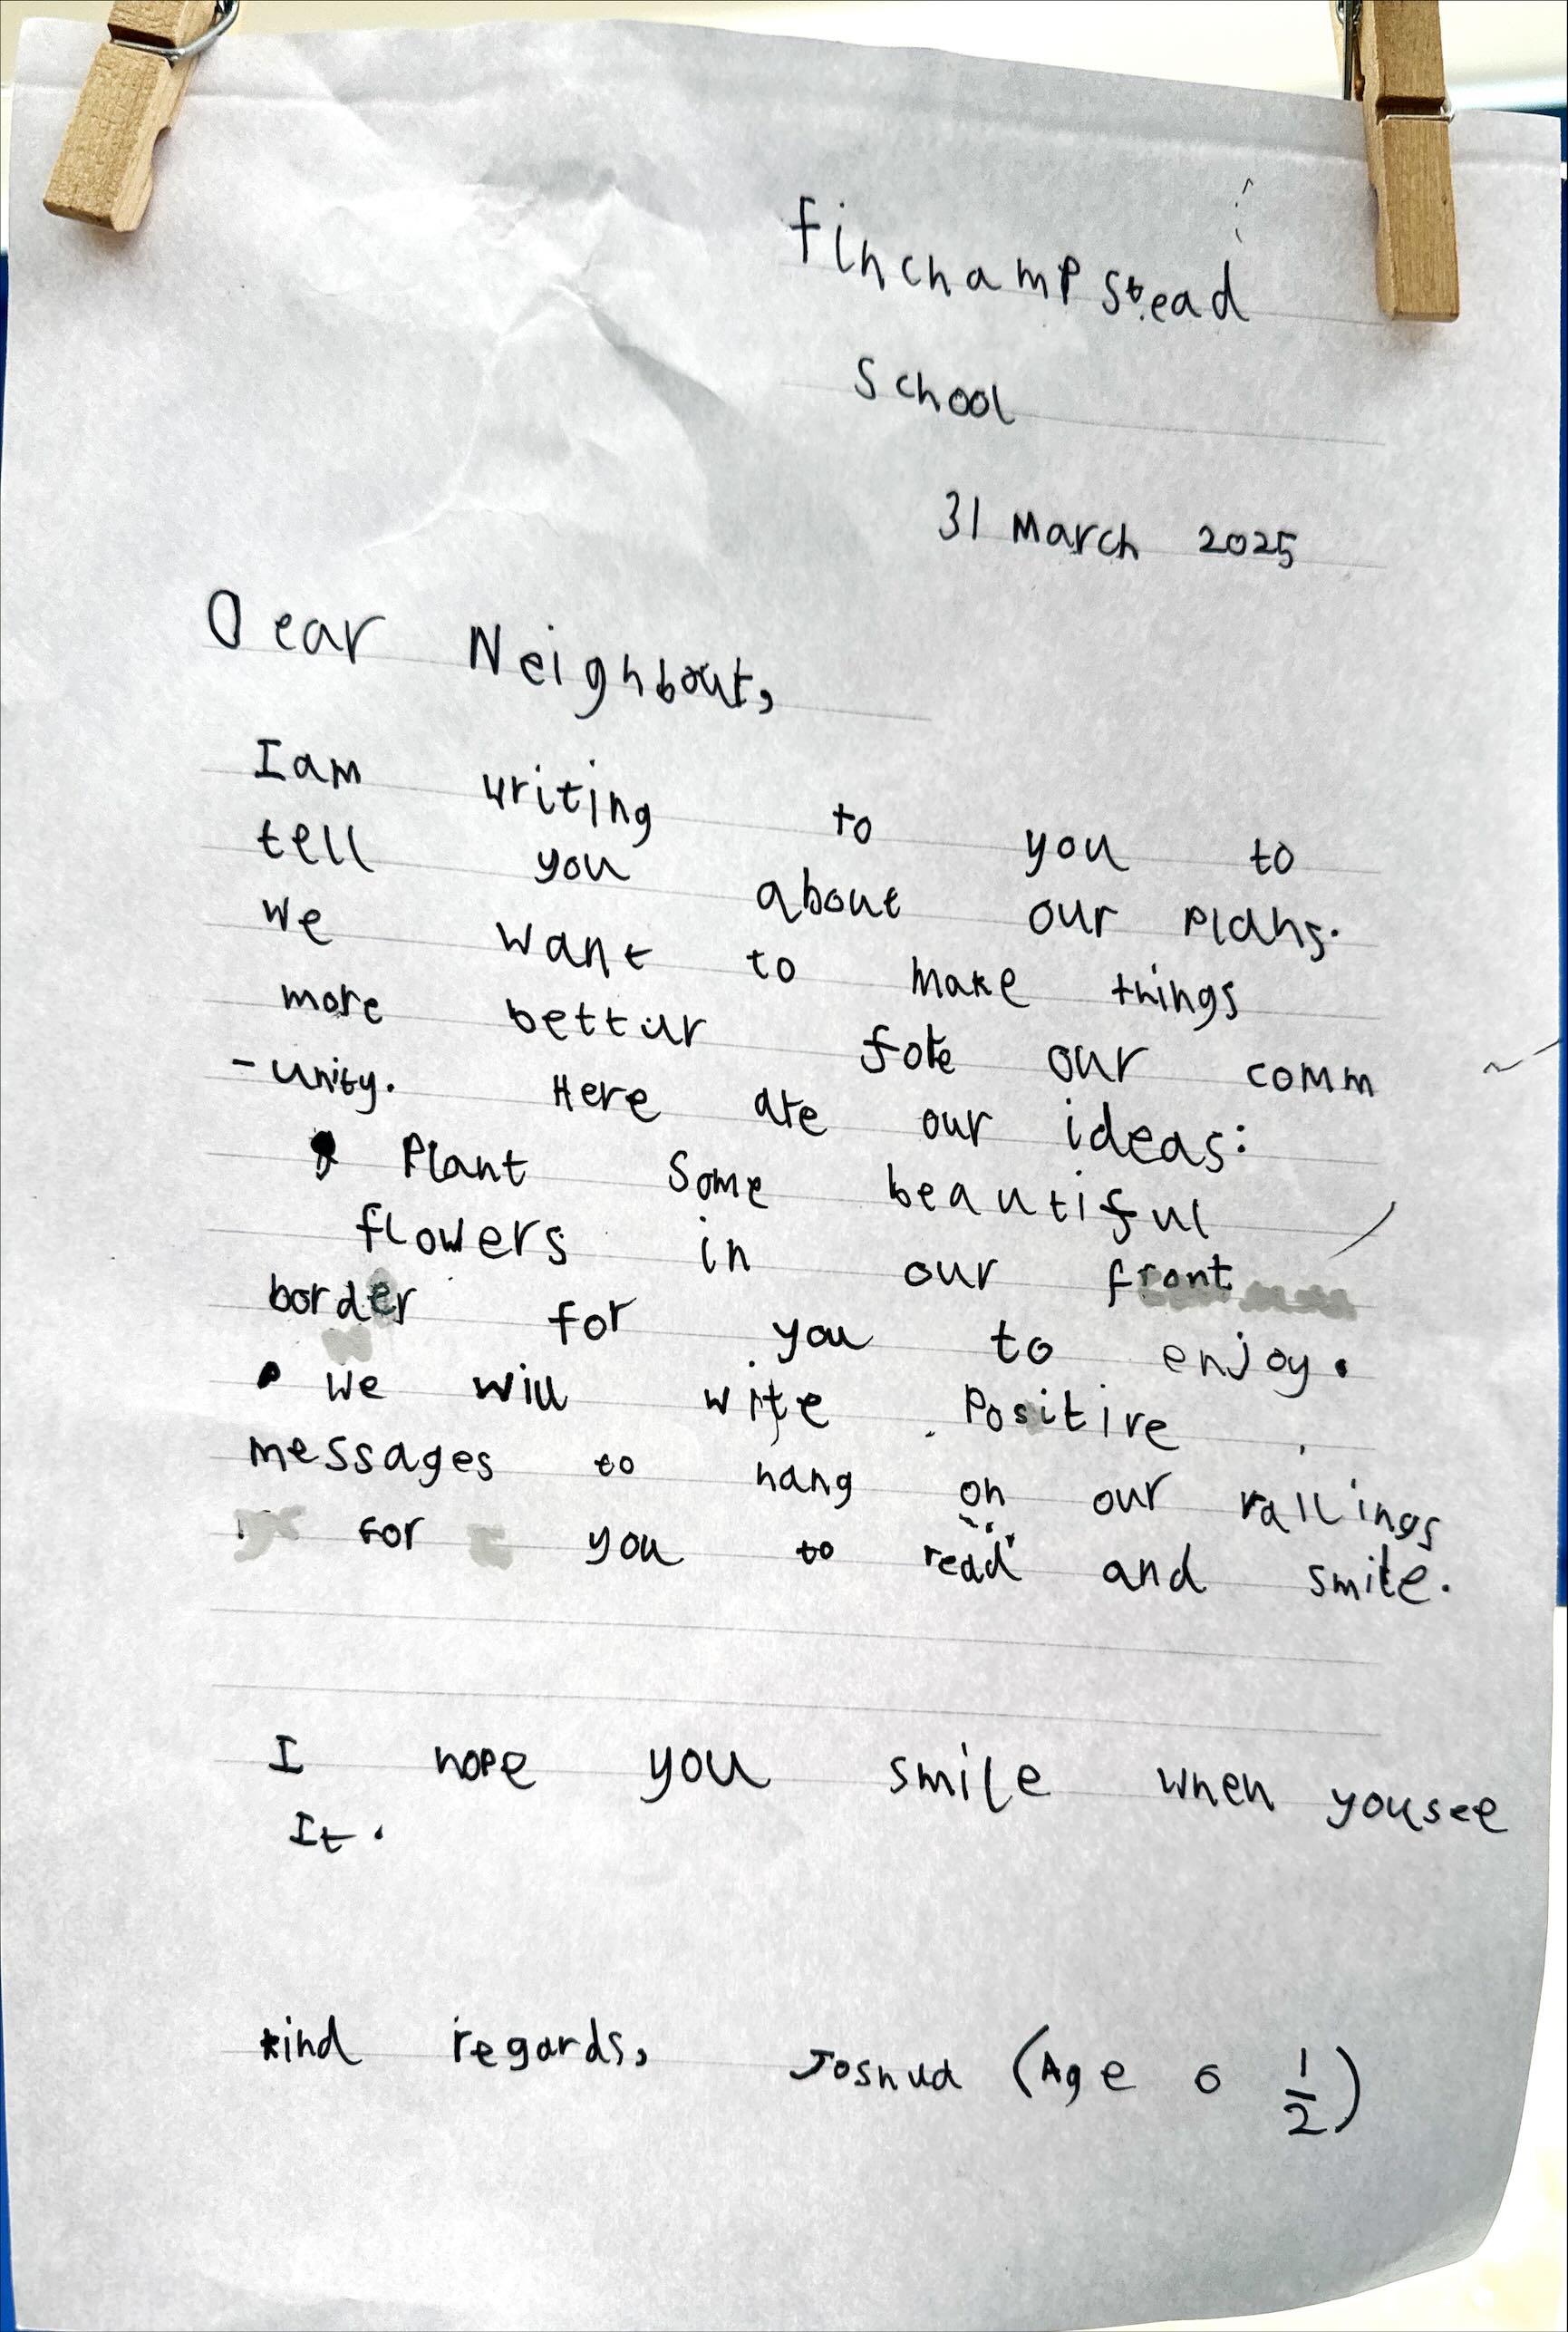 Finchampstead
School
31 March 2025
Dear Neighbour,
I am writing to you to
tell you about our plans.
We want to make things
more bettur fore our comm
-unity. Here are our ideas:
• Plant some beautiful
flowers in our front
border for you to enjoy.
• We will wite positive
messages to hang on our railings
for you to read and smile.
I hope you smile when you see
It.
kind regards, Joshua (Age 6 1/2)